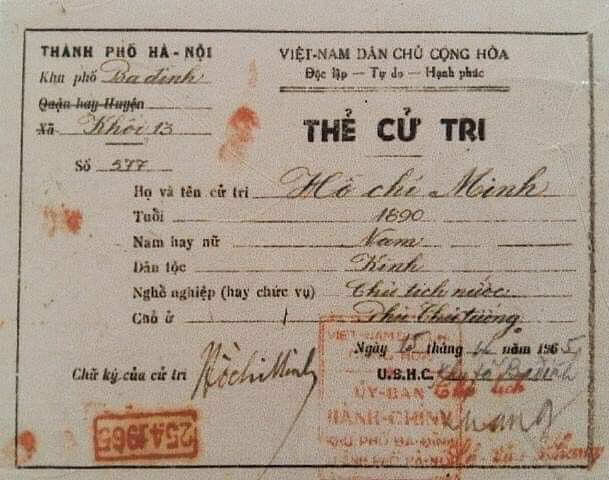 THÀNH PHỐ HÀ-NỘI
Khu phố Ba đình
Quận hay Huyện
Xã Khối 13
Số 577
VIỆT-NAM DÂN CHỦ CỘNG HÒA
Độc lập — Tự do — Hạnh phúc
THẺ CỬ TRI
Họ và tên cử tri Hồ chí Minh
Tuổi 1890
Nam hay nữ Nam
Dân tộc Kinh
Nghề nghiệp (hay chức vụ) Chủ tịch nước
Chỗ ở Phủ Thủ tướng
Ngày 15 tháng năm 1965
U.B.H.C. Khu phố Ba đình
Chữ ký của cử tri Hồ chí Minh
ỦY-BAN
HÀNH-CHÍNH
KHU PHỐ BA-ĐÌNH
THÀNH PHỐ HÀ-NỘI
25 4 1965